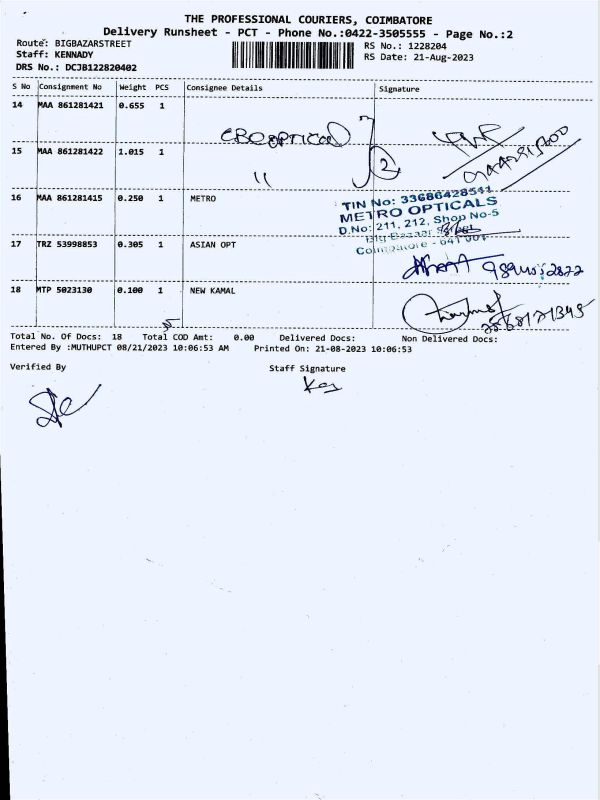 THE PROFESSIONAL COURIERS, COIMBATORE
Delivery Runsheet - PCT - Phone No.:0422-3505555 - Page No.:2
Route: BIGBAZARSTREET
Staff: KENNADY
DRS No.: DCJB122820402
RS No.: 1228204
RS Date: 21-Aug-2023
S No Consignment No Weight PCS Consignee Details Signature
14 MAA 861281421 0.655 1
15 MAA 861281422 1.015 1
2
16 MAA 861281415 0.250 1 METRO
TIN No: 33686428541
METRO OPTICALS
D.No: 211, 212, Shop No-5
Big Bazaar Street
Coimbatore - 641 001
17 TRZ 53998853 0.305 1 ASIAN OPT
18 MTP 5023130 0.100 1 NEW KAMAL
Total No. Of Docs: 18 Total COD Amt: 0.00 Delivered Docs: Non Delivered Docs:
Entered By :MUTHUPCT 08/21/2023 10:06:53 AM Printed On: 21-08-2023 10:06:53
Verified By Staff Signature